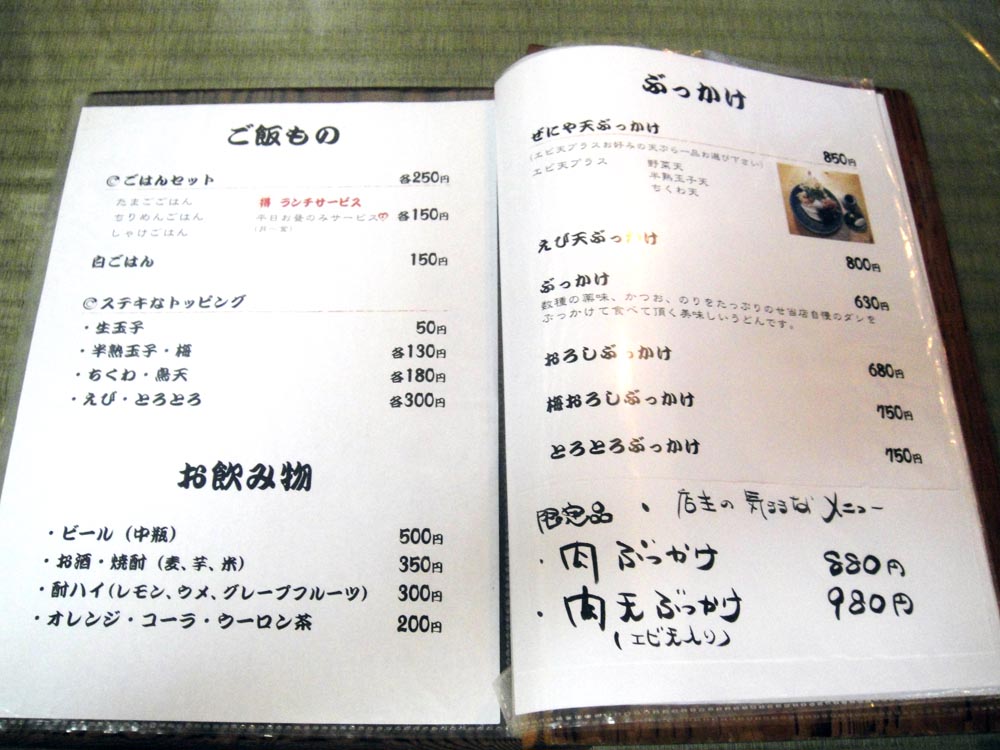 ご飯もの
ごはんセット 各250円
たまごごはん 得 ランチサービス
ちりめんごはん 平日お昼のみサービス 各150円
しゃけごはん (月〜金)
白ごはん 150円
ステキなトッピング
・生玉子 50円
・半熟玉子・梅 各130円
・ちくわ・鳥天 各180円
・えび・とろとろ 各300円
お飲み物
・ビール(中瓶) 500円
・お酒・焼酎(麦、芋、米) 350円
・酎ハイ(レモン、ウメ、グレープフルーツ) 300円
・オレンジ・コーラ・ウーロン茶 200円
ぶっかけ
ぜにや天ぶっかけ 850円
(エビ天プラスお好みの天ぷら一品お選び下さい)
エビ天プラス 野菜天
半熟玉子天
ちくわ天
えび天ぶっかけ 800円
ぶっかけ 630円
数種の薬味、かつお、のりをたっぷりのせ当店自慢のダシを
ぶっかけて食べて頂く美味しいうどんです。
おろしぶっかけ 680円
梅おろしぶっかけ 750円
とろとろぶっかけ 750円
限定品・店主の気まぐれメニュー
・肉ぶっかけ 880円
・肉天ぶっかけ 980円
(エビ天入り)